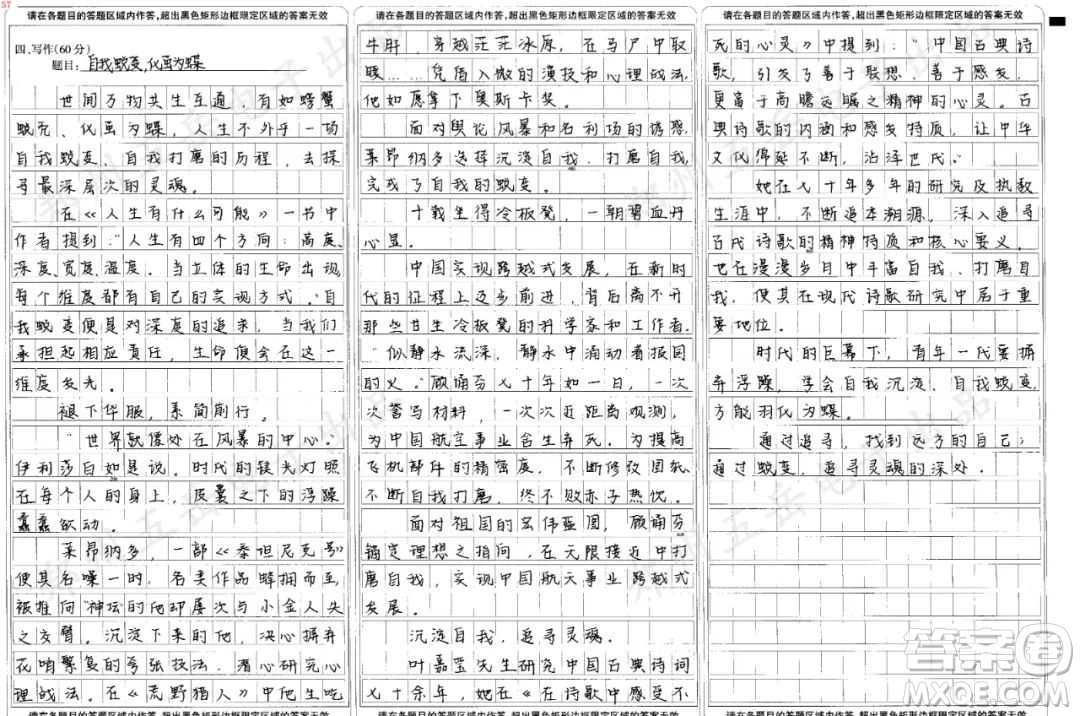 57
请在各题目的答题区域内作答,超出黑色矩形边框限定区域的答案无效
四、写作(60分)
题目：自我蜕变,化茧为蝶
世间万物共生互通，有如螃蟹
蜕壳、化茧为蝶，人生不外乎一场
自我蜕变、自我打磨的历程，去探
寻最深层次的灵魂。
在《人生有什么可能》一书中
作者提到：“人生有四个方向：高度、
深度、宽度、温度。当立体的生命出现，
每个维度都有自己的实现方式。”自
我蜕变便是对深度的追求，当我们
承担起相应责任，生命便会在这一
维度发光。
褪下华服，素简前行。
“世界就像处在风暴的中心。”
伊利莎白如是说。时代的镁光灯照
在每个人的身上，庆囊之下的浮躁
蠢蠢欲动。
莱昂纳多，一部《泰坦尼克号》
使其名噪一时，各类作品蜂拥而至，
被推向“神坛”的他却屡次与小金人失
之交臂。沉淀下来的他，决心摒弃
花哨繁复的夸张技法，潜心研究心
理战法。在《荒野猎人》中他生吃
请在各题目的答题区域内作答,超出黑色矩形边框限定区域的答案无效
请在各题目的答题区域内作答,超出黑色矩形边框限定区域的答案无效
牛肝，穿越茫茫冰原，在马尸中取
暖……凭借入微的演技和心理战法，
他如愿拿下奥斯卡奖。
面对舆论风暴和名利场的诱惑，
莱昂纳多选择沉淀自我、打磨自我，
完成了自我的蜕变。
十载坐得冷板凳，一朝碧血丹
心显。
中国实现跨越式发展，在新时
代的征程上迈步前进，背后离不开
那些甘坐冷板凳的科学家和工作者。
“似静水流深，静水中涌动着报国
的火。”顾诵芬七十年如一日，一次
次誊写材料，一次次近距离观测，
为中国航空事业舍生弃死。为提高
飞机部件的精密度，不断修改图纸，
不断自我打磨，终不败赤子热忱。
面对祖国的宏伟蓝图，顾诵芬
锚定理想之指向，在无限接近中打
磨自我，实现中国航天事业跨越式
发展。
沉淀自我，追寻灵魂。
叶嘉莹先生研究中国古典诗词
七十余年，她在《在诗歌中感受不
请在各题目的答题区域内作答,超出黑色矩形边框限定区域的答案无效
请在各题目的答题区域内作答,超出黑色矩形边框限定区域的答案无效
死的心灵》中提到：“中国古典诗
歌，引发了善于联想、善于感发、
更富于高瞻远瞩之精神的心灵。”古
典诗歌的内涵和感发特质，让中华
文化绵延不断，沾泽巴代。
她在七十年多年的研究及执教
生涯中，不断追本溯源，深入追寻
古代诗歌的精神特质和核心要义，
也在漫漫岁月中丰富自我、打磨自
我，使其在现代诗歌研究中居于重
要地位。
时代的巨幕下，青年一代要摒
弃浮躁，学会自我沉淀、自我蜕变，
方能羽化为蝶。
通过追寻，找到远方的自己；
通过蜕变，追寻灵魂的深处。
请在各题目的答题区域内作答,超出黑色矩形边框限定区域的答案无效
郑州五岳电子出品
答案圈
MXQE.COM